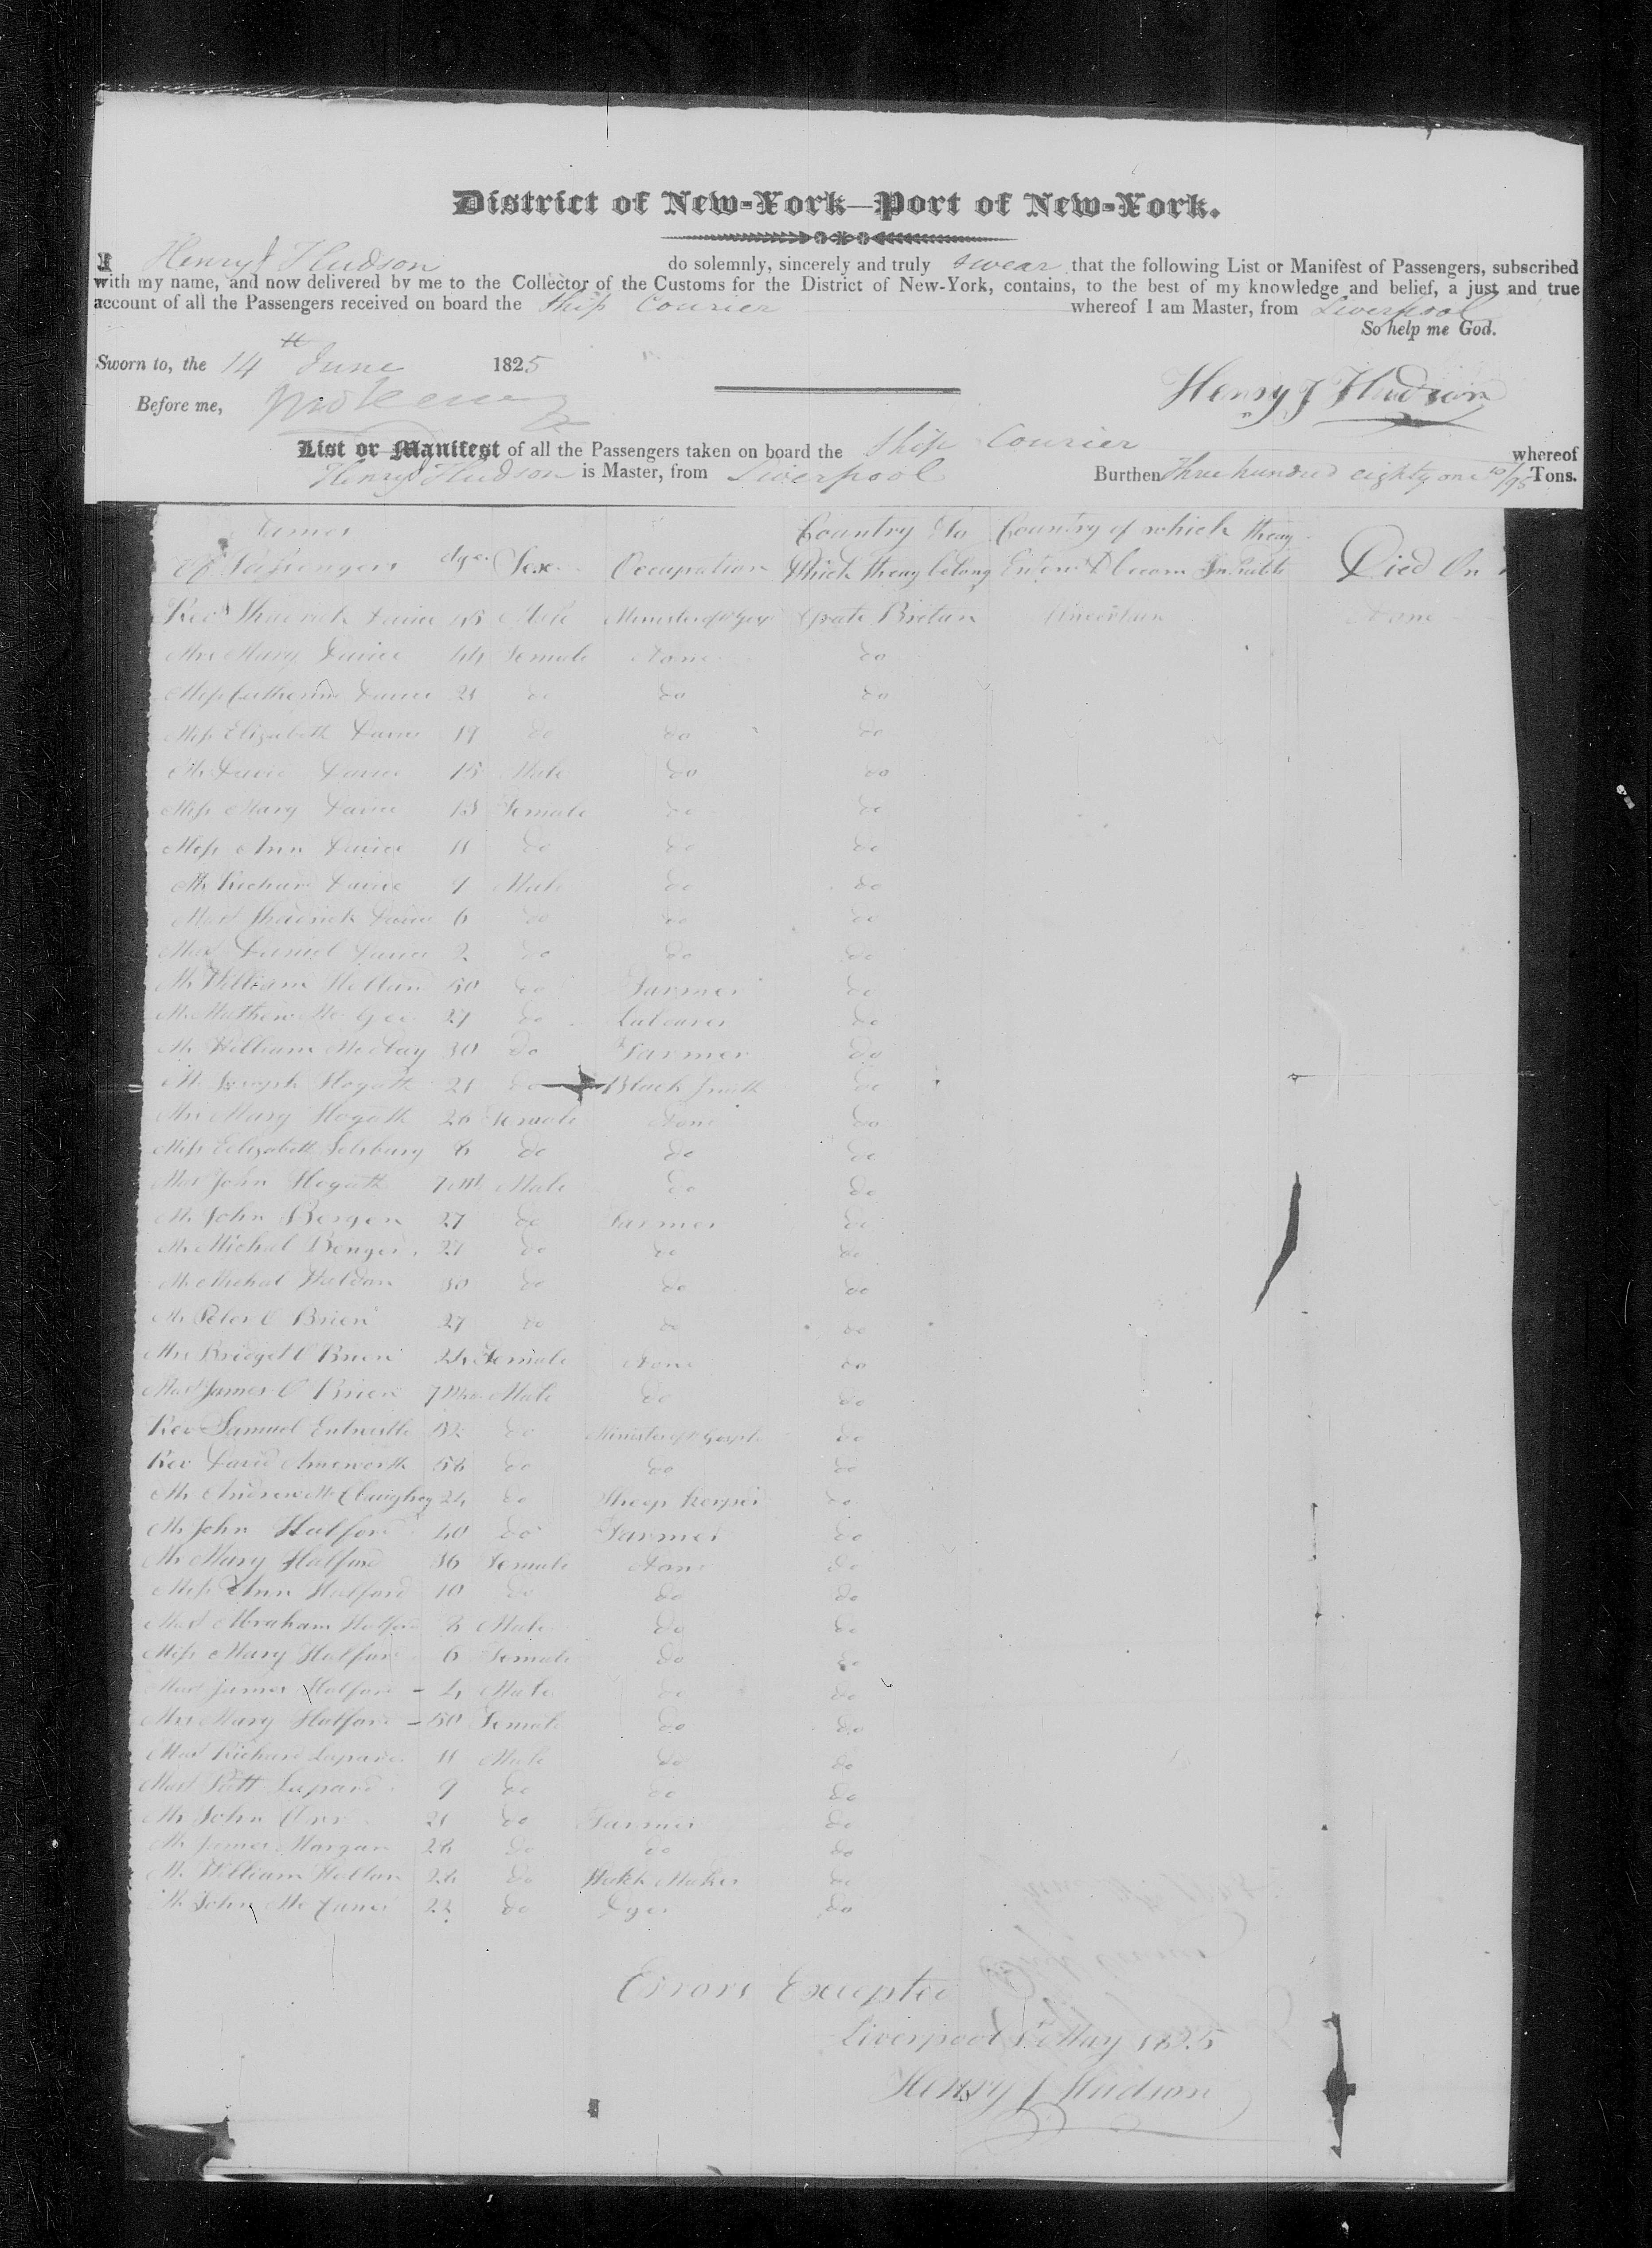 District of New-York—Port of New-York.
I Henry J Hudson do solemnly, sincerely and truly swear that the following List or Manifest of Passengers, subscribed
with my name, and now delivered by me to the Collector of the Customs for the District of New-York, contains, to the best of my knowledge and belief, a just and true
account of all the Passengers received on board the Ship Courier whereof I am Master, from Liverpool
So help me God.
Sworn to, the 14th June 1825
Before me, Henry J Hudson
List or Manifest of all the Passengers taken on board the Ship Courier whereof
Henry J Hudson is Master, from Liverpool Burthen Three hundred eighty one 10/95 Tons.
Names Country To Country of which theay
Of Passengers Age Sex Occupation Which theay belong Died On
Revd Shadrick Davice 45 Male Minister of Gosp Grate Britan Uncertain None
Mrs Mary Davice 44 Female None do
Miss Catherine Davice 21 do do do
Miss Elizabeth Davice 19 do do do
Mr David Davice 15 Male do do
Miss Mary Davice 13 Female do do
Miss Ann Davice 11 do do do
Mr Richard Davice 9 Male do do
Mast Shadrick Davice 6 do do do
Mast Daniel Davice 2 do do do
Mr William Hollan 50 do Farmer do
Mr Mathew Mc Gee 27 do Labourer do
Mr William 30 do Farmer do
Mr Joseph Hogath 21 do Black Smith do
Mrs Mary Hogath 26 Female None do
Miss Elizabeth Selsbury 8 do do do
Mast John Hogath 7 Mh Male do do
Mr John Bergen 27 do Farmer do
Mr Michal 27 do do do
Mr Michal Waldon 30 do do do
Mr Peter O Brien 27 do do do
Mrs Bridget O Brien 24 Female None do
Mast James O Brien 7 Mhs Male do do
Rev Samuel Entwistle 52 do Minister of Gospel do
Rev David Ainsworth 56 do do do
Mr Andrew Mc Claughey 24 do Sheep Keeper do
Mr John Halford 40 do Farmer do
Mrs Mary Halford 36 Female None do
Miss Ann Halford 10 do do do
Mast Abraham Halford 8 Male do do
Miss Mary Halford 6 Female do do
Mast James Halford - 4 Male do do
Mrs Mary Halford - 50 Female do do
Mast Richard Lepard 11 Male do do
Mast Lepard 9 do do do
Mr John Orr 21 do Farmer do
Mr James Morgan 26 do do do
Mr William Hollan 26 do Maker do
Mr John Mc 22 do Dyer do
Errors Excepted
Liverpool May 1825
Henry J Hudson